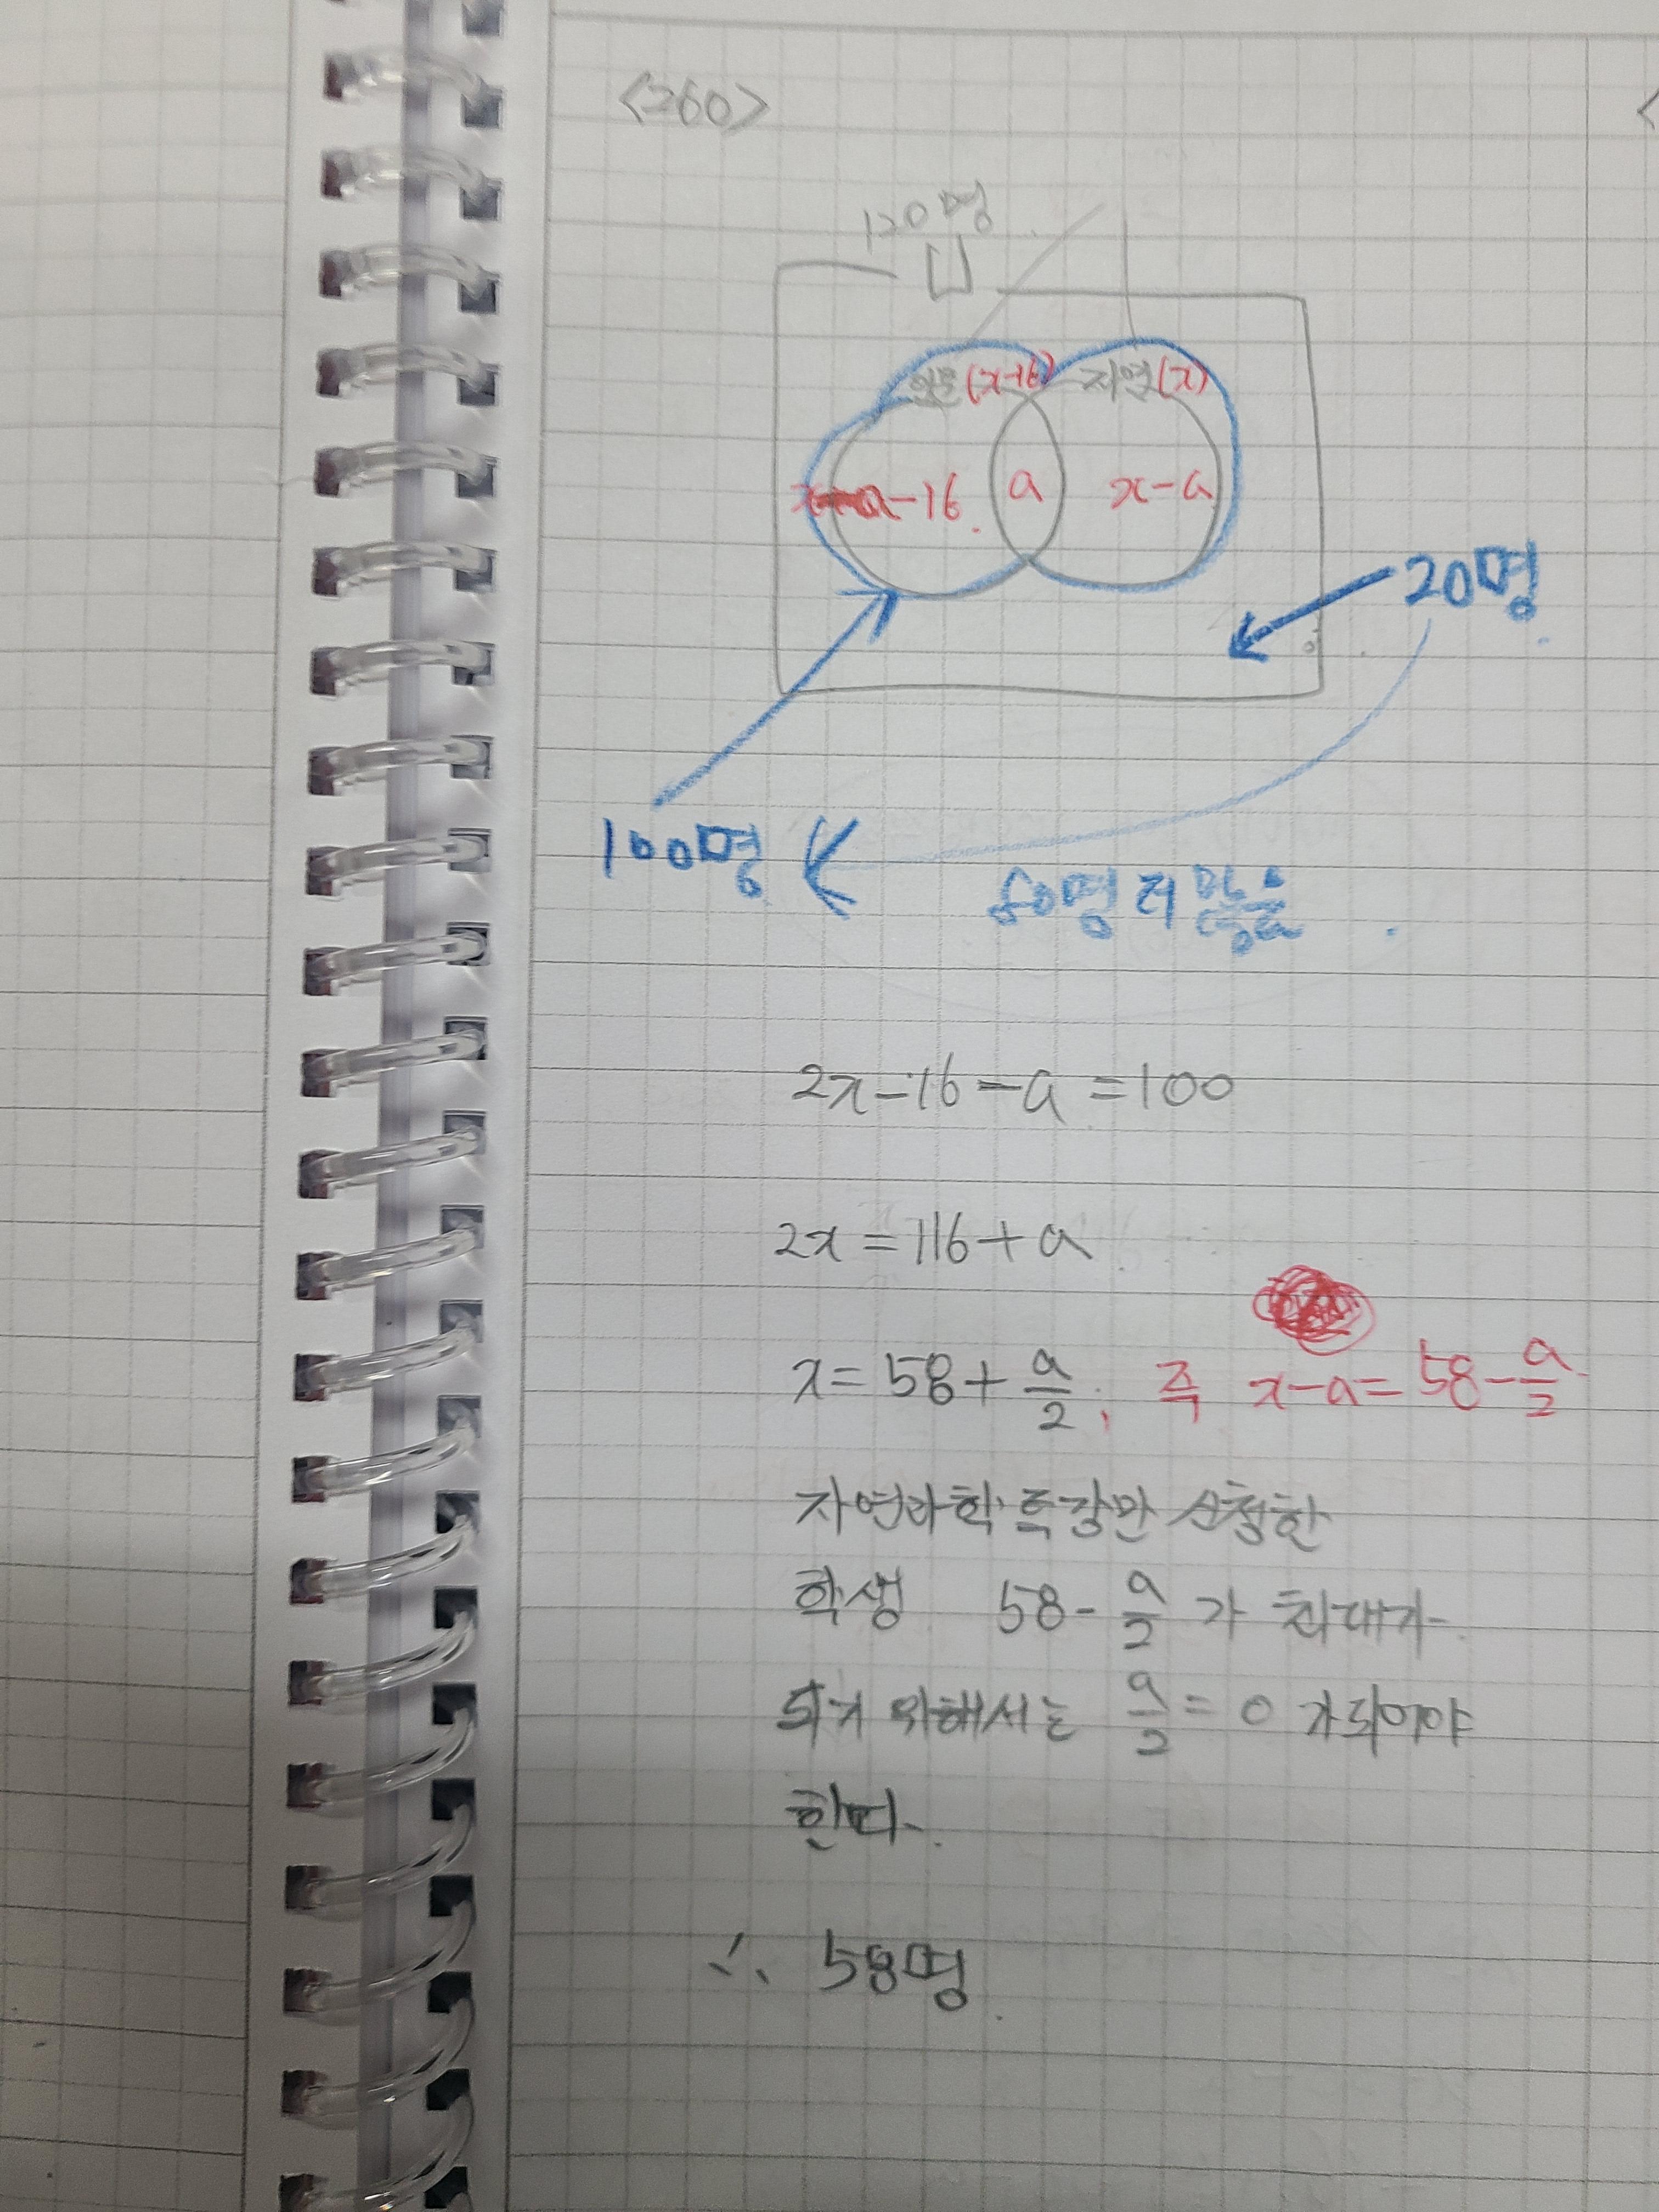 <260>
120명
U
인문 (x-16) 자연 (x)
x-a-16 a x-a
20명
100명
80명 더 많음.
2x-16-a=100
2x=116+a
x=58+a/2, 즉 x-a=58-a/2
자연과학 특강만 신청한
학생 58-a/2 가 최대가
되기 위해서는 a/2=0 가 되어야
한다.
∴ 58명